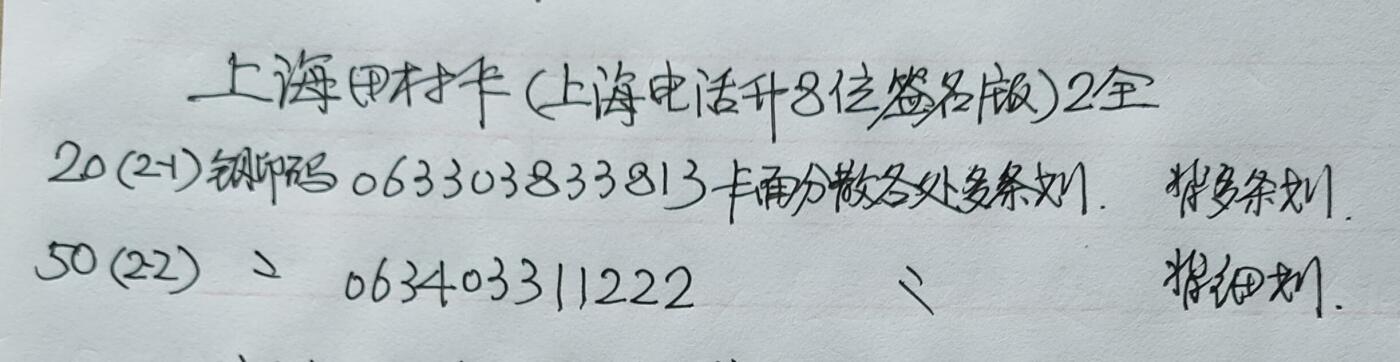 上海田村卡(上海电话升8位签名版)2全
20(2-1)钢印码063303833813卡面分散各处多条划. 背多条划.
50(2-2) 〃 063403311222 〃 背细划.